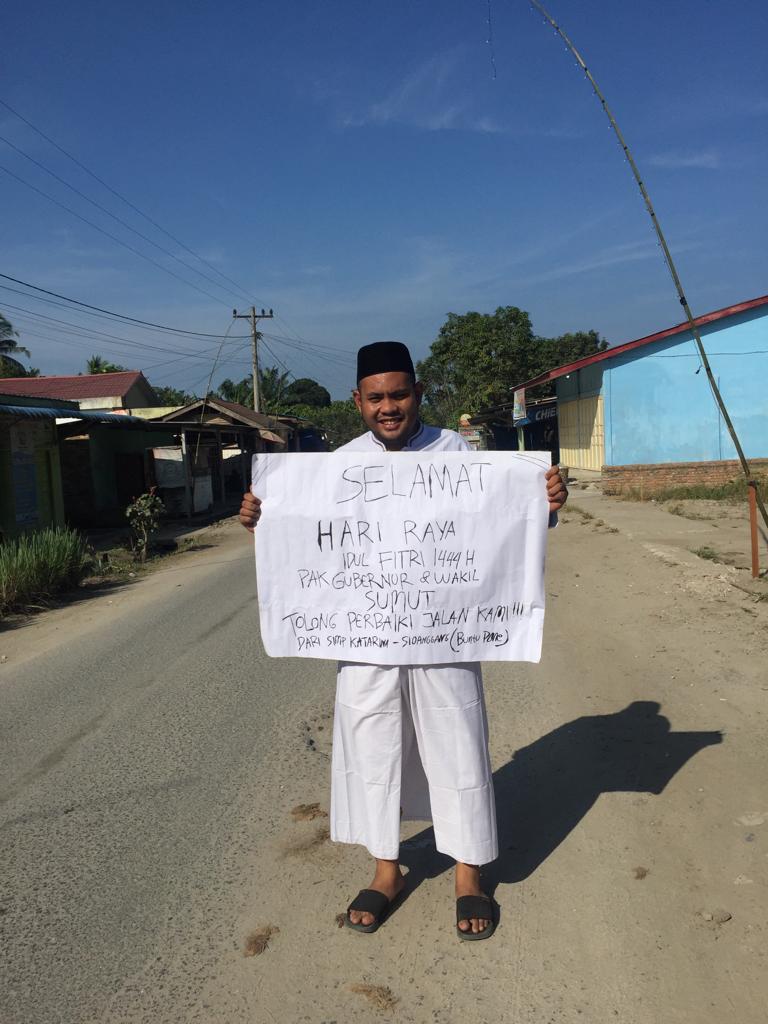 SELAMAT
HARI RAYA
IDUL FITRI 1444 H
PAK GUBERNUR & WAKIL
SUMUT
TOLONG PERBAIKI JALAN KAMI !!!
DARI SIMP KATARUM - SIDANGGANG (BUNTU PANE)
CHIE